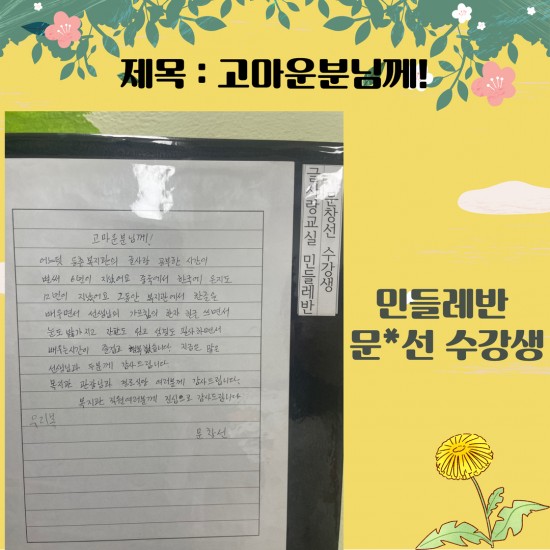 제목 : 고마운분님께!
글사랑교실 민들레반
문창선 수강생
고마운분님께!
어느덧 복지관의 공부한 시간이
벌써 6년이 지났어요 중국에서 한국에 온지도
12년이 지났어요 그동안 복지관에서 한글을
배우면서 선생님의 가르침의 한자 한글 쓰면서
눈도 밝아지고
배우는시간이 즐겁고 행복했습니다
선생님과 감사드립니다
복지관 관장님과 경로식당 여러분께 감사드립니다
복지관 직원여러분께 진심으로 감사드립니다
문창선
민들레반
문*선 수강생